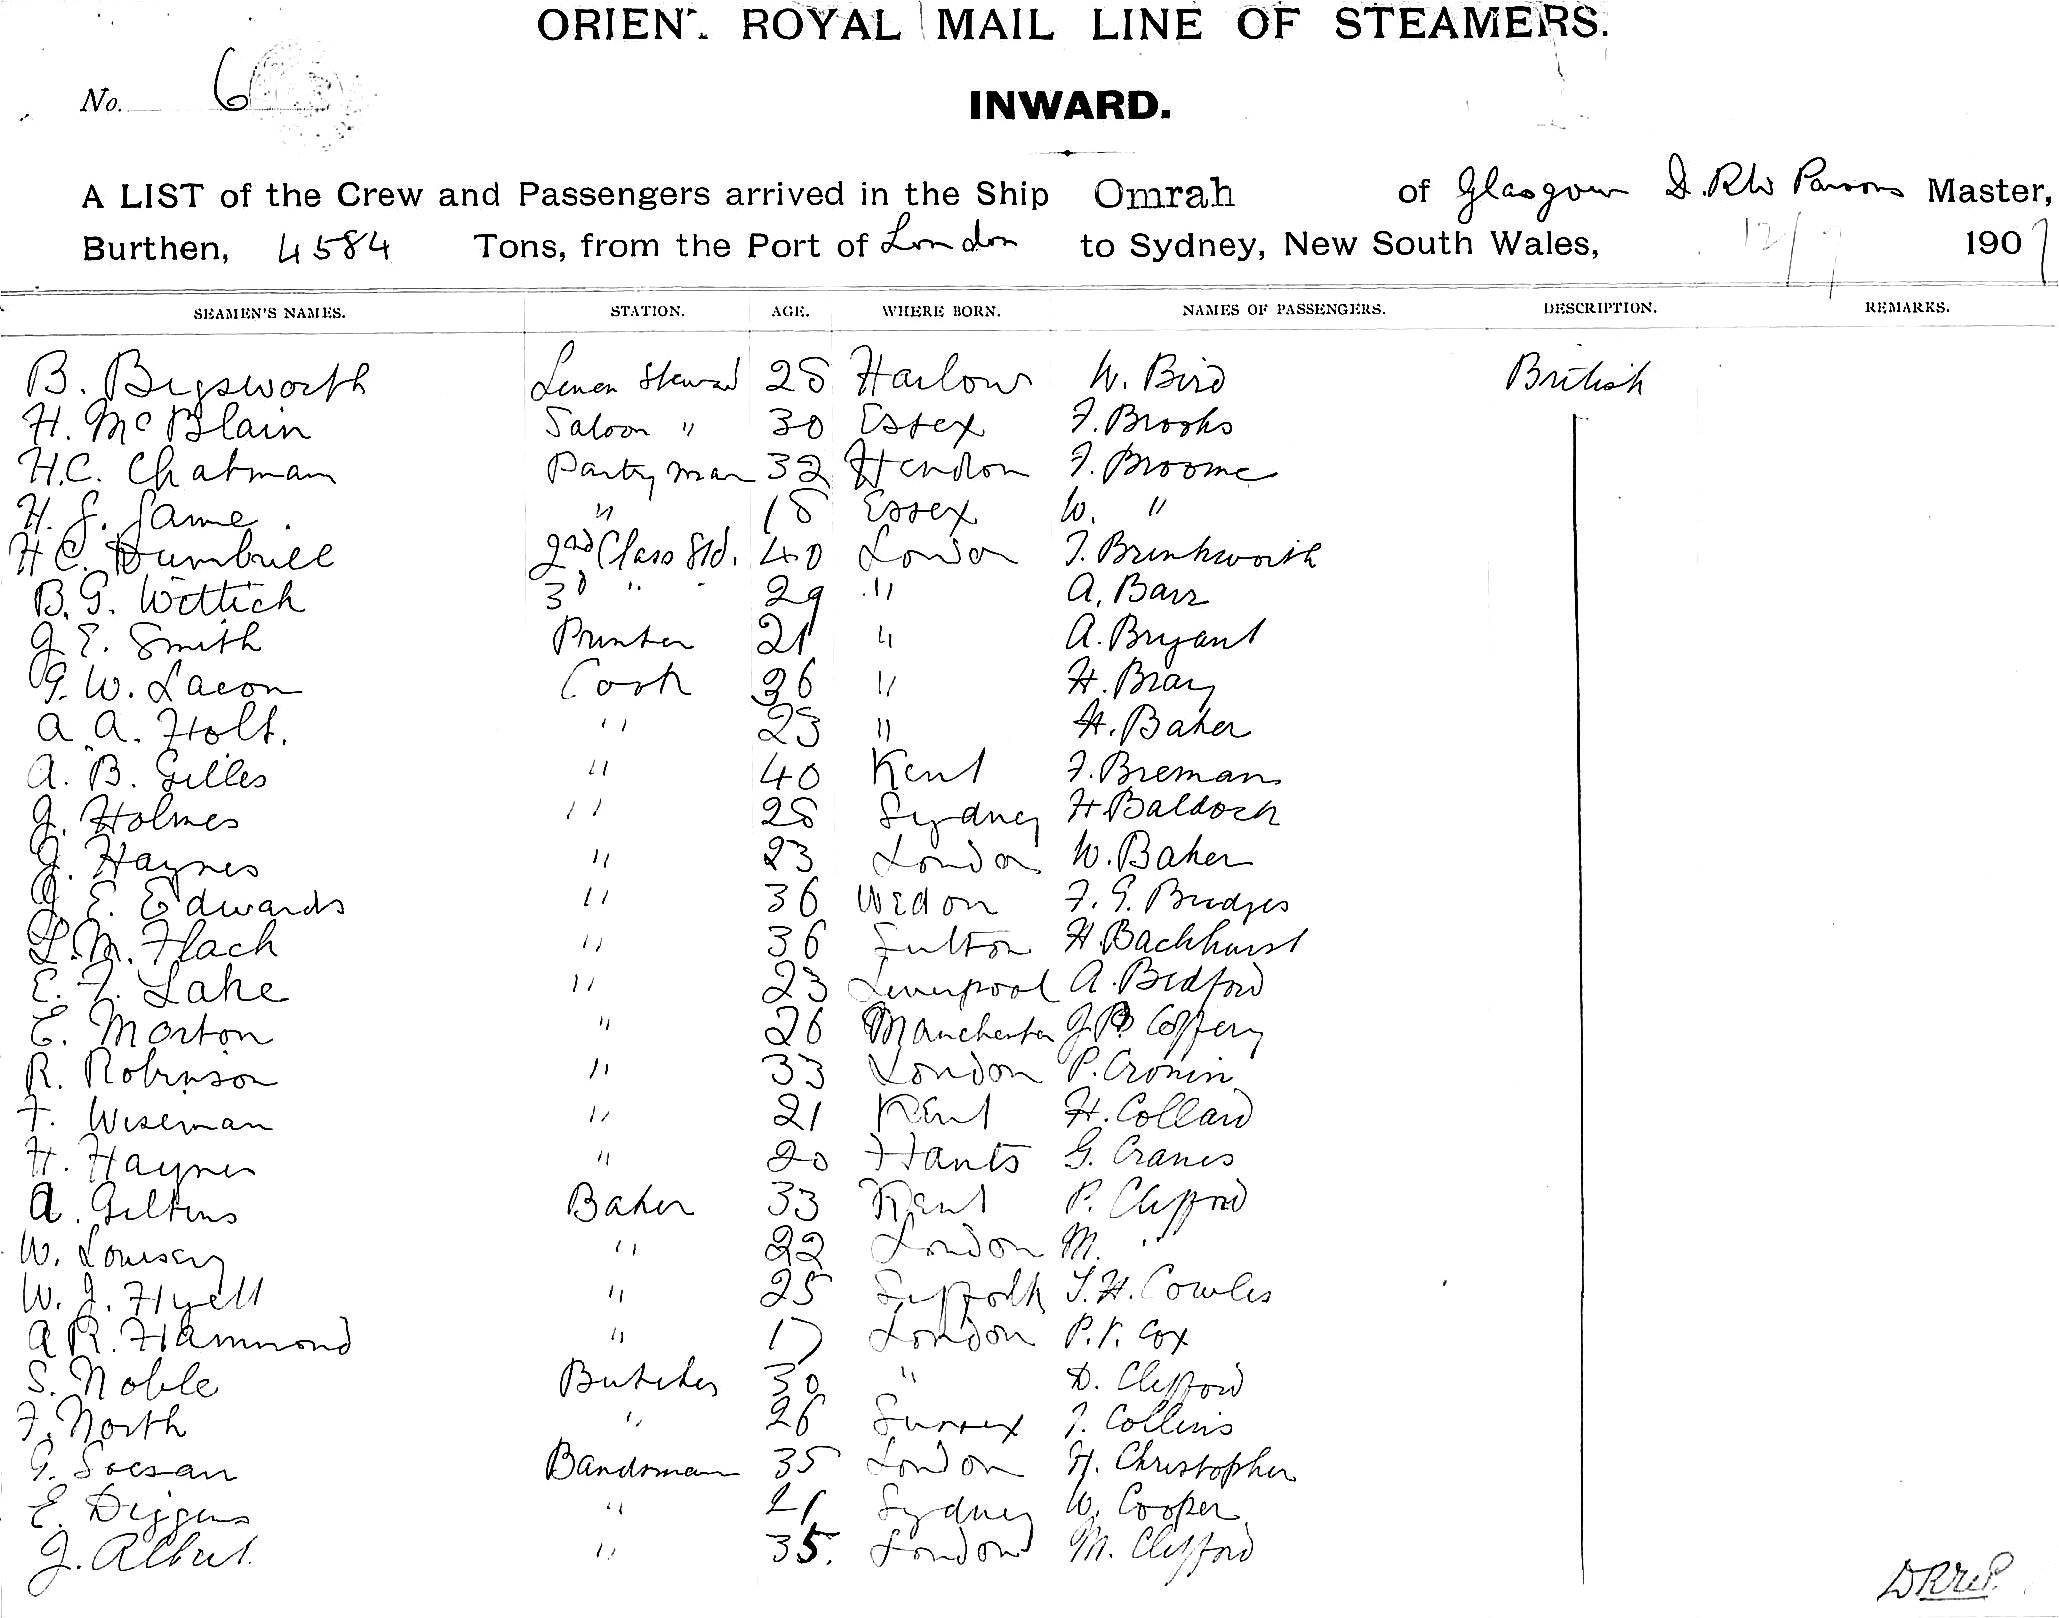 ORIENT ROYAL MAIL LINE OF STEAMERS.
No. 6
INWARD.
A LIST of the Crew and Passengers arrived in the Ship Omrah of Glasgow Master,
Burthen, 4584 Tons, from the Port of London to Sydney, New South Wales, 12/7 1907
SEAMEN'S NAMES. STATION. AGE. WHERE BORN. NAMES OF PASSENGERS. DESCRIPTION. REMARKS.
B. Bigsworth Linen Steward 28 Harlow W. Bird British
H. McBlain Saloon " 30 Essex F. Brooks
H.C. Chatman Pantry man 32 Hendon F. Broome
H. J. " 18 Essex W. "
H C. Dumbrill 2nd Class Std. 40 London T. Brinkworth
B. G. Wittich 3d " " 29 " A. Barr
J E. Smith Printer 21 " A. Bryant
G. W. Lacon Cook 36 " H. Bray
A. A. Holt. " 23 " H. Baker
A. B. Gilles " 40 Kent F. Breman
J. Holmes " 28 Sydney H Baldock
J. Haynes " 23 London W. Baker
J E. Edwards " 36 Wedon F. G. Bridges
L. M. Flack " 36 Sutton H Backhurst
E. F. Lake " 23 Liverpool A. Bedford
E. Morton " 26 Manchester J. P
R. Robinson " 33 London P. Cronin
F. Wiseman " 21 Kent H. Collard
H. Haynes " 20 Hants G. Cranes
A. Baker 33 Kent P. Clifford
W. " 22 London M. "
W. J. Hyett " 25 Suffolk T. H. Cowles
A R. Hammond " 17 London P. V. Cox
S. Noble Butcher 30 " D. Clifford
F. North " 26 Sussex T. Collins
G. Bandsman 35 London H. Christopher
E. Diggins " 21 Sydney W. Cooper
J. Albert. " 35. London M. Clifford